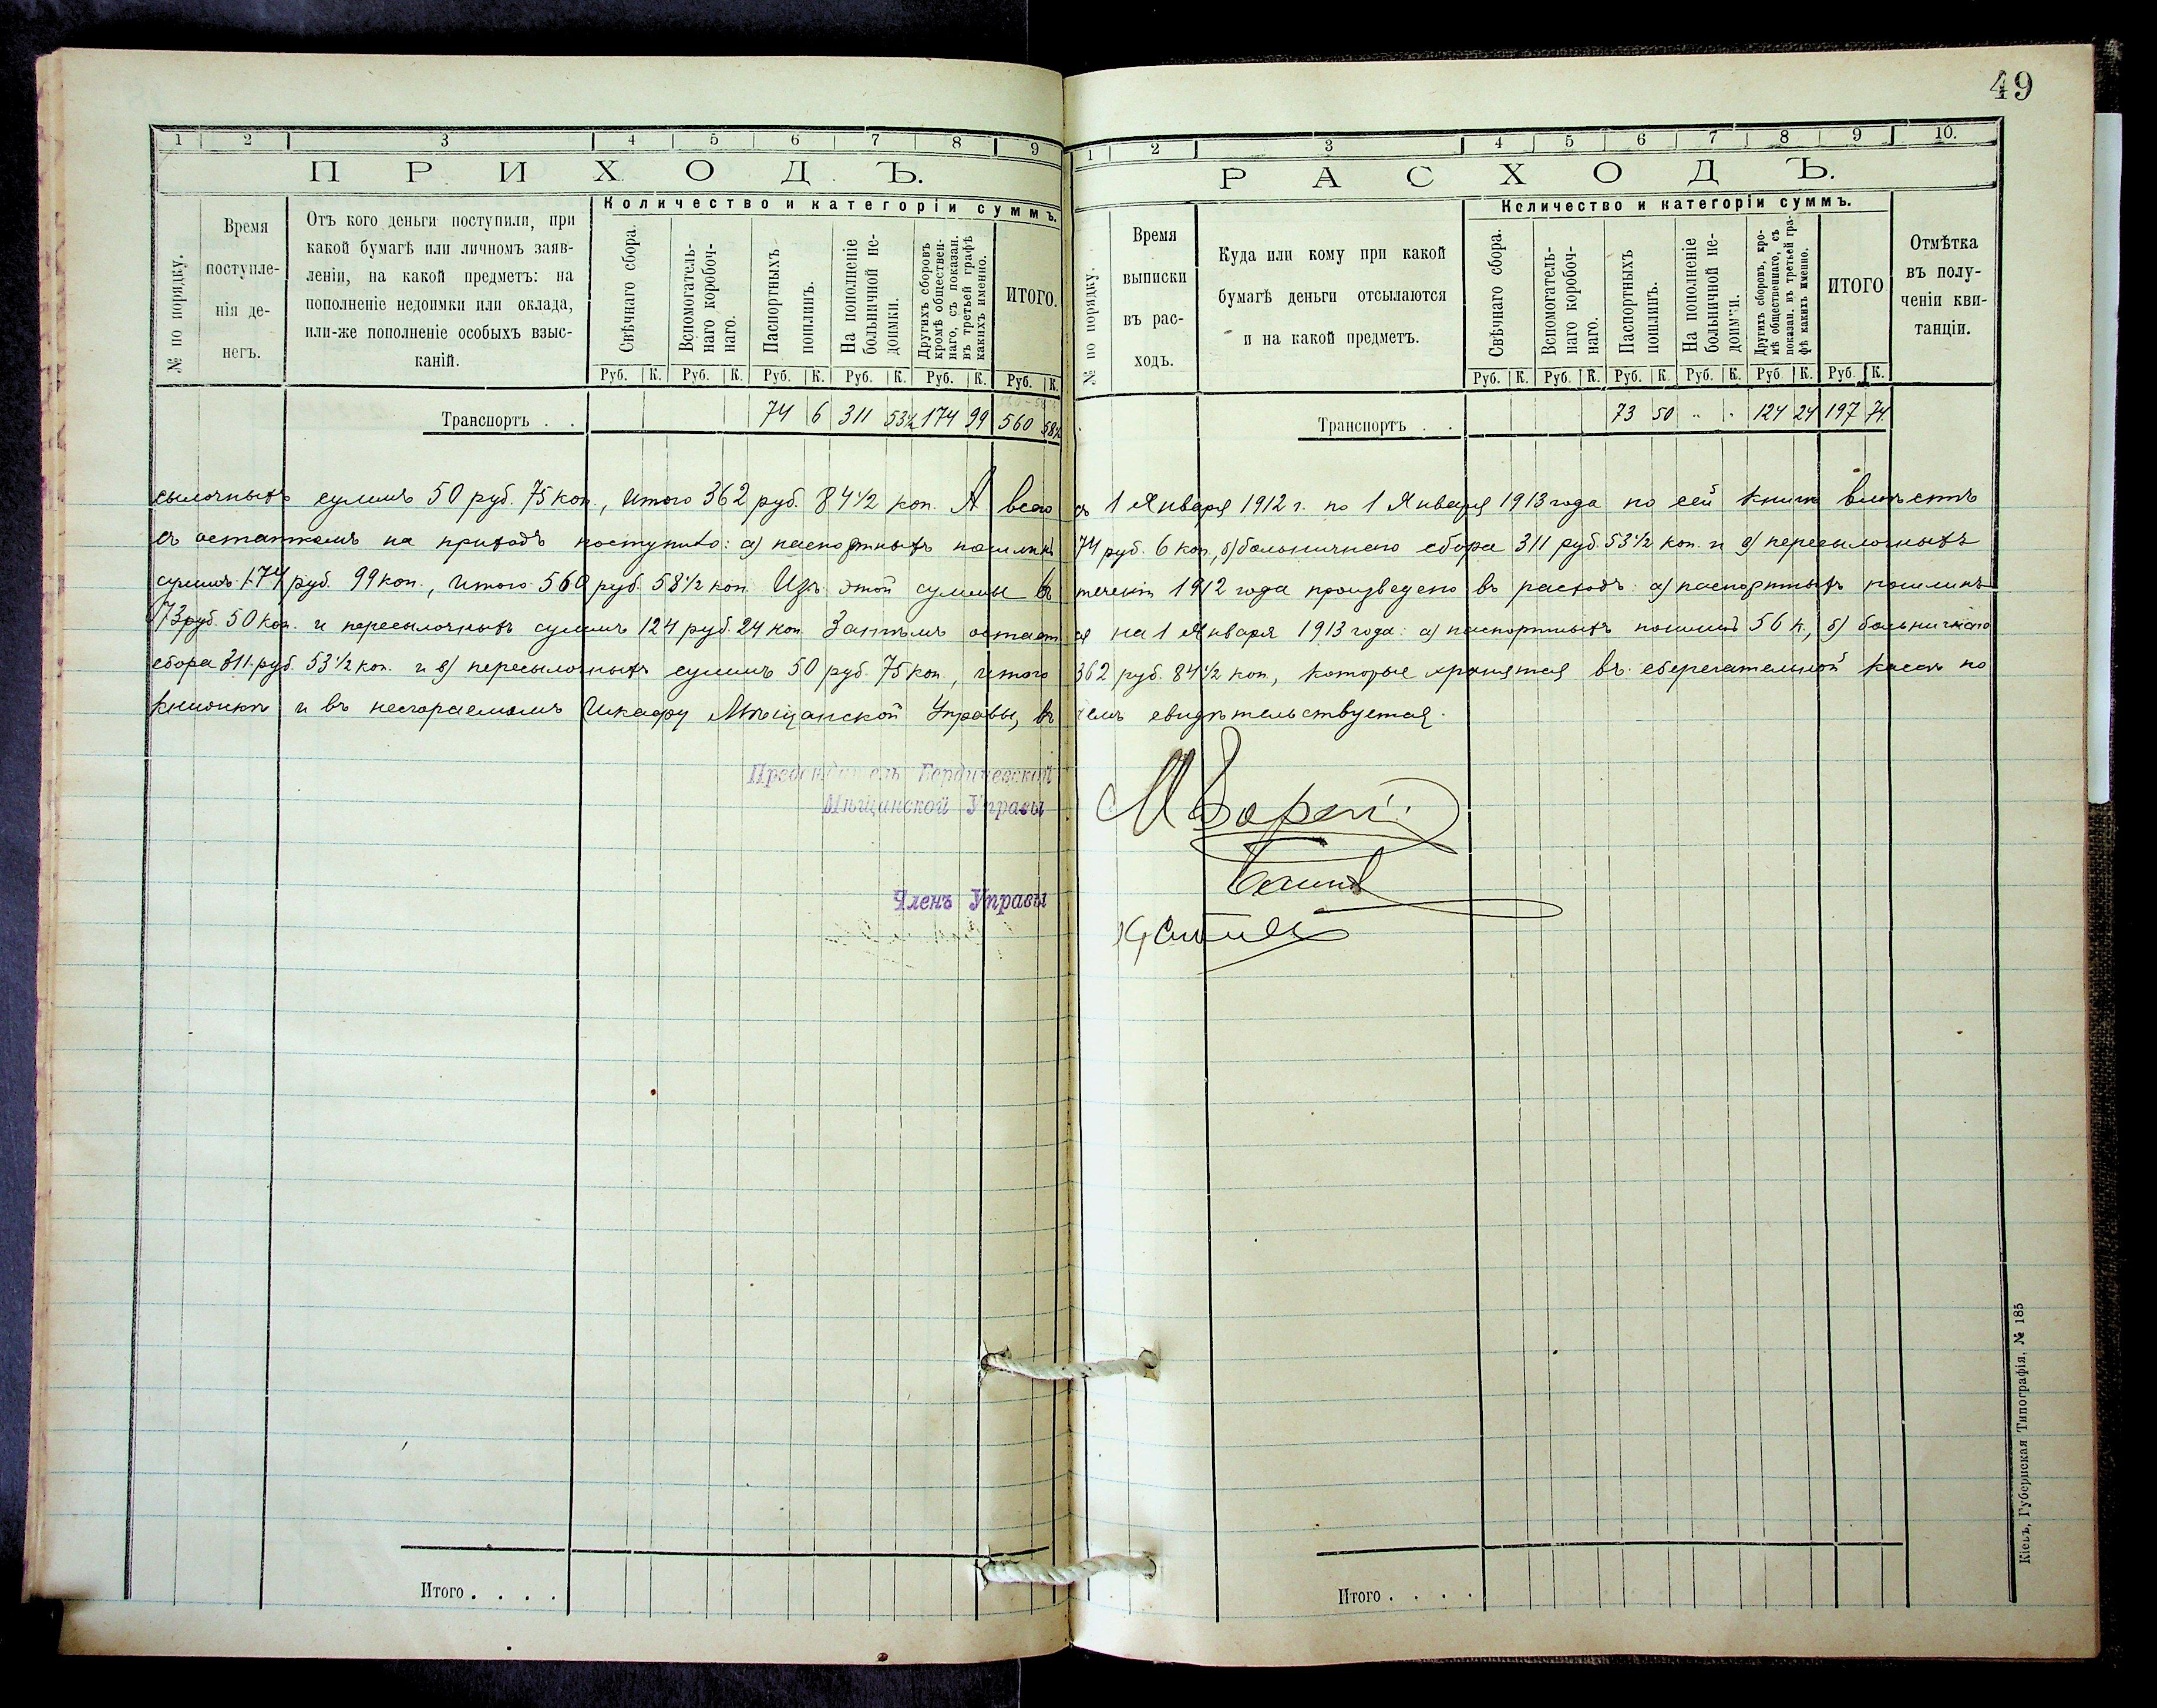 49
1 2 3 4 5 6 7 8 9
ПРИХОДЪ.
№ по порядку.
Время поступле-
нія де-
негъ.
Отъ кого деньги поступили, при
какой бумагѣ или личномъ заяв-
леніи, на какой предметъ: на
пополненіе недоимки или оклада,
или-же пополненіе особыхъ взыс-
каній.
Количество и категоріи суммъ.
Свѣчнаго сбора.
Вспомогатель-
наго коробоч-
наго.
Паспортныхъ
пошлинъ.
На пополненіе
больничной не-
доимки.
Другихъ сборовъ
кромѣ обществен-
наго, съ показан.
въ третьей графѣ
какихъ именно.
ИТОГО.
Руб. К. Руб. К. Руб. К. Руб. К. Руб. К. Руб. К.
Транспортъ . . 74 6 311 53½ 174 99 560 58½
1 2 3 4 5 6 7 8 9 10.
РАСХОДЪ.
№ по порядку.
Время
выписки
въ рас-
ходъ.
Куда или кому при какой
бумагѣ деньги отсылаются
и на какой предметъ.
Количество и категоріи суммъ.
Свѣчнаго сбора.
Вспомогатель-
наго коробоч-
наго.
Паспортныхъ
пошлинъ.
На пополненіе
больничной не-
доимки.
Другихъ сборовъ, кро-
мѣ общественнаго, съ
показан. въ третьей гра-
фѣ какихъ именно.
ИТОГО
Отмѣтка
въ полу-
ченіи кви-
танціи.
Руб. К. Руб. К. Руб. К. Руб. К. Руб К. Руб. К.
Транспортъ . . 73 50 " " 124 24 197 74
сылочныхъ суммъ 50 руб. 75 коп., итого 362 руб. 84½ коп. А всего съ 1 Января 1912 г. по 1 Января 1913 года по сей книгѣ вмѣстѣ
съ остаткомъ на приходъ поступило: а) паспортныхъ пошлинъ 74 руб. 6 коп., б) больничнаго сбора 311 руб. 53½ коп. и в) пересылочныхъ
суммъ 174 руб. 99 коп., итого 560 руб. 58½ коп. Изъ этой суммы въ теченіи 1912 года произведено въ расходъ: а) паспортныхъ пошлинъ
73 руб. 50 коп. и пересылочныхъ суммъ 124 руб. 24 коп. Затѣмъ остается на 1 Января 1913 года: а) паспортныхъ пошлинъ 56 к., б) больничнаго
сбора 311 руб. 53½ коп. и в) пересылочныхъ суммъ 50 руб. 75 коп., итого 362 руб. 84½ коп., которые хранятся въ сберегательной кассѣ по
книжкѣ и въ несгораемомъ шкафу Мѣщанской Управы, въ чемъ свидѣтельствуется.
Предсѣдатель Бердичевской
Мѣщанской Управы
Членъ Управы
Итого . . . .
Итого . . . .
Кіевъ, Губернская Типографія, № 185